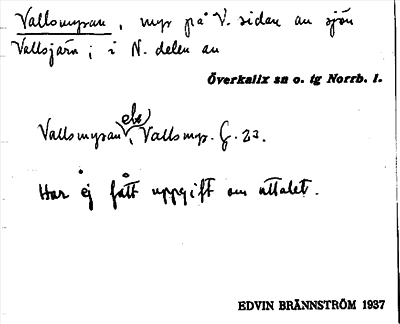 Vallsmyran, myr på V. sidan av sjön
Vallsjärn; i N. delen av
Överkalix sn o. tg Norrb. l.
Vallsmyran el. Vallsmyr. G. 23.
Har ej fått uppgift om uttalet.
EDVIN BRÄNNSTRÖM 1937